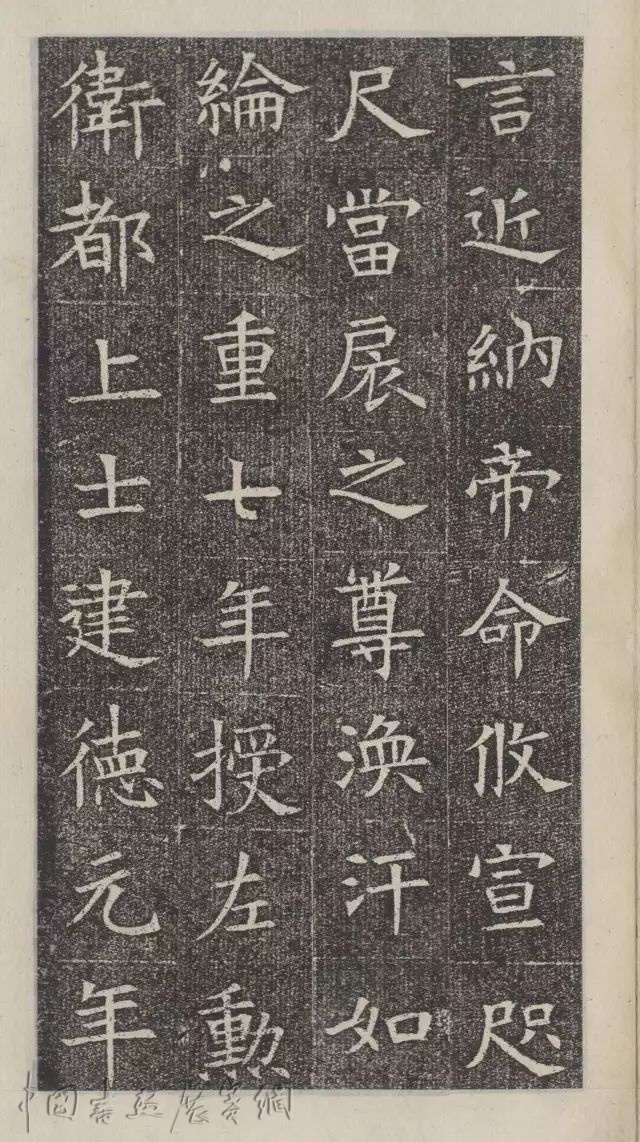 言近納帝命攸宣咫
尺當扆之尊渙汗如
綸之重七年授左勳
衛都上士建德元年
中国書法展賽網